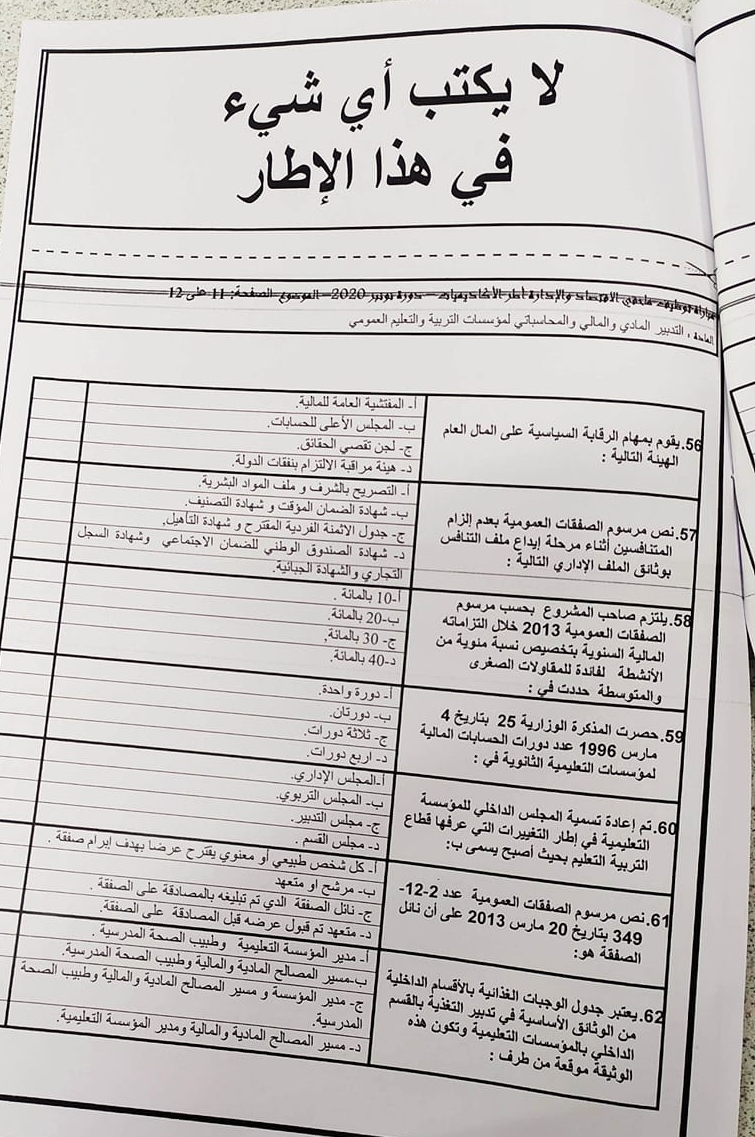 لا يكتب أي شيء
في هذا الإطار
مباراة توظيف ملحقي الاقتصاد والإدارة أطر الأكاديميات – دورة نونبر 2020 – الموضوع الصفحة: 11 على 12
المادة : التدبير المادي والمالي والمحاسباتي لمؤسسات التربية والتعليم العمومي
56.يقوم بمهام الرقابة السياسية على المال العام
الهيئة التالية :
أ- المفتشية العامة للمالية.
ب- المجلس الأعلى للحسابات.
ج- لجن تقصي الحقائق.
د- هيئة مراقبة الالتزام بنفقات الدولة.
57.نص مرسوم الصفقات العمومية بعدم إلزام
المتنافسين أثناء مرحلة إيداع ملف التنافس
بوثائق الملف الإداري التالية :
أ- التصريح بالشرف و ملف المواد البشرية.
ب- شهادة الضمان المؤقت و شهادة التصنيف.
ج- جدول الاثمنة الفردية المقترح و شهادة التأهيل.
د- شهادة الصندوق الوطني للضمان الاجتماعي وشهادة السجل
التجاري والشهادة الجبائية.
58.يلتزم صاحب المشروع بحسب مرسوم
الصفقات العمومية 2013 خلال التزاماته
المالية السنوية بتخصيص نسبة مئوية من
الأنشطة لفائدة للمقاولات الصغرى
والمتوسطة حددت في :
أ-10 بالمائة .
ب-20 بالمائة.
ج- 30 بالمائة.
د-40 بالمائة.
59.حصرت المذكرة الوزارية 25 بتاريخ 4
مارس 1996 عدد دورات الحسابات المالية
لمؤسسات التعليمية الثانوية في :
أ- دورة واحدة.
ب- دورتان.
ج- ثلاثة دورات.
د- اربع دورات.
60.تم إعادة تسمية المجلس الداخلي للمؤسسة
التعليمية في إطار التغييرات التي عرفها قطاع
التربية التعليم بحيث أصبح يسمى ب:
أ-المجلس الإداري.
ب- المجلس التربوي.
ج- مجلس التدبير.
د- مجلس القسم .
61.نص مرسوم الصفقات العمومية عدد 2-12-
349 بتاريخ 20 مارس 2013 على أن نائل
الصفقة هو:
أ- كل شخص طبيعي أو معنوي يقترح عرضا بهدف إبرام صفقة .
ب- مرشح او متعهد
ج- نائل الصفقة الذي تم تبليغه بالمصادقة على الصفقة .
د- متعهد تم قبول عرضه قبل المصادقة على الصفقة.
62.يعتبر جدول الوجبات الغذائية بالأقسام الداخلية
من الوثائق الأساسية في تدبير التغذية بالقسم
الداخلي بالمؤسسات التعليمية وتكون هذه
الوثيقة موقعة من طرف :
أ- مدير المؤسسة التعليمية وطبيب الصحة المدرسية .
ب-مسير المصالح المادية والمالية وطبيب الصحة المدرسية.
ج- مدير المؤسسة و مسير المصالح المادية والمالية وطبيب الصحة
المدرسية.
د- مسير المصالح المادية والمالية ومدير المؤسسة التعليمية.